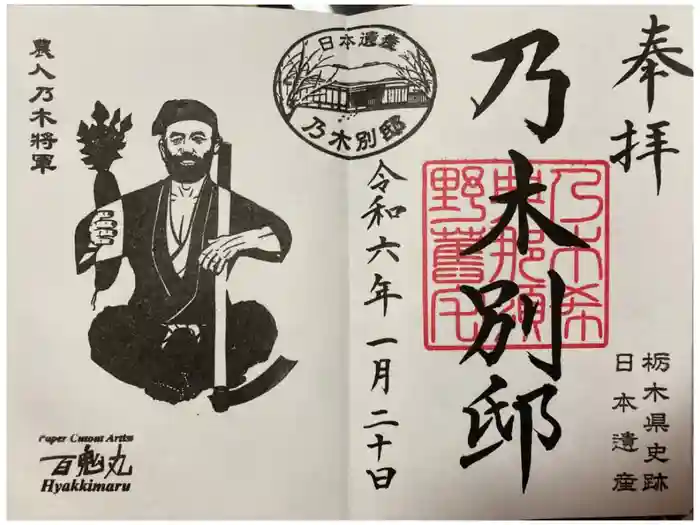 奉拝
乃木別邸
乃木希
典那須
野舊宅
栃木県史跡
日本遺産
日本遺産
乃木別邸
令和六年一月二十日
農人乃木将軍
Paper Cutout Artist
百鬼丸
Hyakkimaru